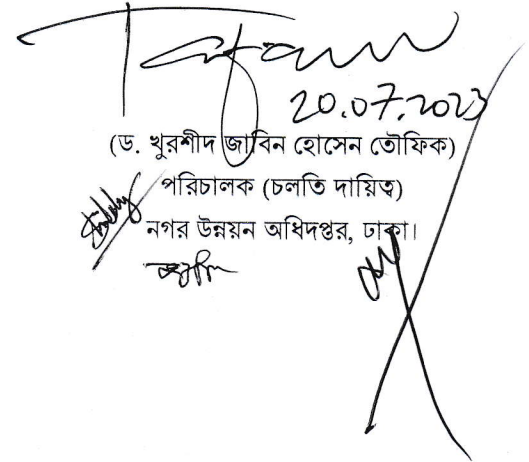 20.07.2023
(ড. খুরশীদ জাবিন হোসেন তৌফিক)
পরিচালক (চলতি দায়িত্ব)
নগর উন্নয়ন অধিদপ্তর, ঢাকা।